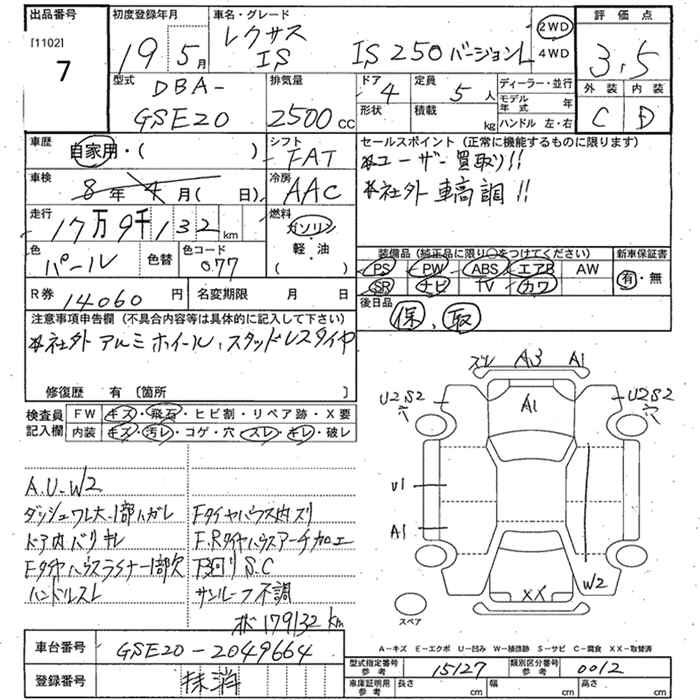 出品番号 初度登録年月 車名・グレード 評価点
[1102] 7
19年 5月
レクサス
IS IS250バージョンL
2WD 4WD
3.5
外装 内装
C D
型式 DBA-
GSE20
排気量 2500cc
ドア 4 定員 5人
形状 積載 kg
ディーラー・並行
モデル年式 年
ハンドル 左・右
車歴 自家用・( )
シフト FAT
車検 8年4月(日)
冷房 AAC
走行 17万9千132km
燃料 ガソリン・軽油 ( )
色 パール 色替 色コード 077
R券 14060円 名変期限 月 日
セールスポイント (正常に機能するものに限ります)
*ユーザー買取り!!
*社外車高調!!
装備品 (純正品に限り○をつけてください) 新車保証書
PS PW ABS エアB AW 有・無
SR ナビ TV カワ
後日品 保、取
注意事項申告欄 (不具合内容等は具体的に記入して下さい)
*社外アルミホイール、スタッドレスタイヤ
修復歴 有 〔箇所 〕
検査員記入欄
FW キズ・飛石・ヒビ割・リペア跡・X要
内装 キズ・汚レ・コゲ・穴・スレ・キレ・破レ
A.U-W2
ダッシュワレ大-1部ハガレ
ドア内バリキレ
Fタイヤハウスライナー1部欠
ハンドルスレ
Fタイヤハウス内ズリ
F.Rタイヤハウスアーチ加工
下廻りS.C
サンルーフ不調
179132km
ズレ A3 A1
U2S2 穴 A1 U2S2 穴
U1
A1
XX W2
スペア
A-キズ E-エクボ U-凹み W-補修跡 S-サビ C-腐食 XX-取替済
車台番号 GSE20-2049664
登録番号 抹消
型式指定番号 参考 15127 類別区分番号 参考 0012
車庫証明用 参考 長さ cm 幅 cm 高さ cm